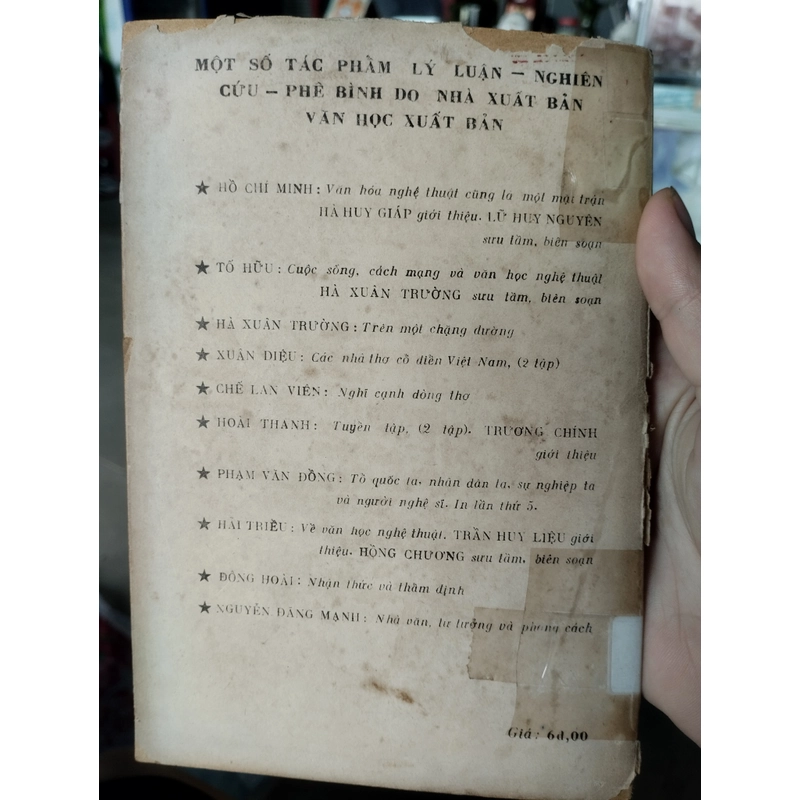 MỘT SỐ TÁC PHẨM LÝ LUẬN — NGHIÊN
CỨU — PHÊ BÌNH DO NHÀ XUẤT BẢN
VĂN HỌC XUẤT BẢN
★ HỒ CHÍ MINH : Văn hóa nghệ thuật cũng là một mặt trận
HÀ HUY GIÁP giới thiệu. LỮ HUY NGUYÊN
sưu tầm, biên soạn
★ TỐ HỮU : Cuộc sống, cách mạng và văn học nghệ thuật
HÀ XUÂN TRƯỜNG sưu tầm, biên soạn
★ HÀ XUÂN TRƯỜNG : Trên một chặng đường
★ XUÂN DIỆU : Các nhà thơ cổ điển Việt Nam, (2 tập)
★ CHẾ LAN VIÊN : Nghĩ cạnh dòng thơ
★ HOÀI THANH : Tuyển tập, (2 tập). TRƯƠNG CHÍNH
giới thiệu
★ PHẠM VĂN ĐỒNG : Tổ quốc ta, nhân dân ta, sự nghiệp ta
và người nghệ sĩ. In lần thứ 5.
★ HẢI TRIỀU : Về văn học nghệ thuật, TRẦN HUY LIỆU giới
thiệu. HỒNG CHƯƠNG sưu tầm, biên soạn
★ ĐÔNG HOÀI : Nhận thức và thẩm định
★ NGUYỄN ĐĂNG MẠNH : Nhà văn, tư tưởng và phong cách
Giá : 6đ,00